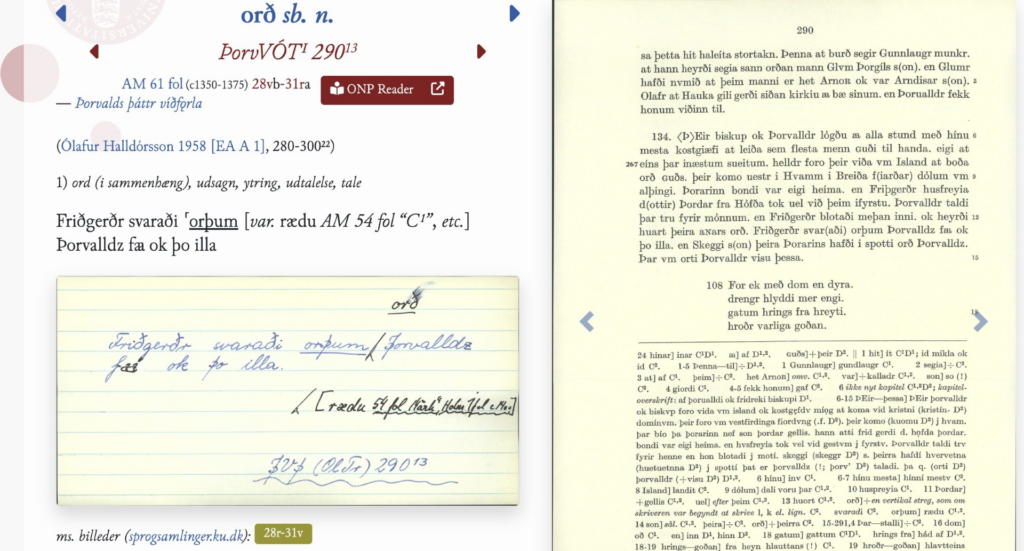 orð sb. n.
ÞorvVÓTᴵ 290¹³
AM 61 fol (c1350-1375) 28vb-31ra
ONP Reader
— Þorvalds þáttr víðfǫrla
(Ólafur Halldórsson 1958 [EA A 1], 280-300²²)
1) ord (i sammenhæng), udsagn, ytring, udtalelse, tale
Friðgerðr svaraði ⸢orþum [var. rædu AM 54 fol “C¹”, etc.]
Þorvalldz fꜳ ok þo illa
orð
Friðgerðr svaraði orþum / Þorvalldz
fꜳ ok þo illa.
/ [rædu 54 fol
ÞVþ (OlTr) 290¹³
ms. billeder (sprogsamlinger.ku.dk): 28r-31v
290
sa þetta hit haleita stortakn. Þenna at burð segir Gunnlaugr munkr.
at hann heyrði segia sann orðan mann Glvm Þorgils s(on). en Glumr
hafði nvmið at þeim manni er het Arnoʀ ok var Arndisar s(on). 3
Olafr at Hauka gili gerði siðan kirkiu ꜳ bæ sinum. en Þorualldr fekk
honum viðinn til.
134. ⟨Þ⟩Eir biskup ok Þorvalldr lǫgðu ꜳ alla stund með hínu 6
mesta kostgiæfi at leiða sem flesta menn Guði til handa. eigi at
267 eins þar inæstum sueitum. helldr foro þeir viða vm Island at boða
orð Guðs. þeir komo uestr i Hvamm i Breiða f(iarðar) dǫlum vm 9
alþingi. Þorarinn bondi var eigi heima. en Friþgerðr husfreyia
d(ottir) Þordar fra Hǫfða tok uel við þeim ifyrstu. Þorvalldr taldi
þar tru fyrir mǫnnum. en Friðgerðr blotaði meþan inni. ok heyrði 12
huart þeira aɴars orð. Friðgerðr svar(aði) orþum Þorvalldz fꜳ ok
þo illa. en Skeggi s(on) þeira Þorarins hafði i spotti orð Þorvalldz.
Þar vm orti Þorvalldr visu þessa. 15
108 For ek með dom en dyra.
drengr hlyddi mer engi.
gatum hrings fra hreyti.
hroðr varliga goðan.
24 hinar] inar C¹D¹. ꜳ] af D¹·². guðs]+þeir D². ‖ 1 hit] ít C¹D¹; id mikla ok
id C². 1-5 Þenna—til]÷D¹·². 1 Gunnlaugr] gundlaugr C¹. 2 segia]÷C².
3 at] af C¹. þeim]÷C². het Arnoʀ] omv. C¹·². var]+kalladr C¹·². son] so (!)
C². 4 giordi C¹. 4-5 fekk honum] gaf C². 6 ikke nyt kapitel C¹·²D²; kapitel-
overskrift: af þorualldi ok fridreki biskupi D¹. 6-15 ÞEir—þessa] ÞEir þorvalldr
ok biskvp foro vida vm island ok kostgęfdv miǫg at koma vid kristni (kristin- D²)
dominvm. þeir foro vm vestfirdinga fiordvng (.f. D²). þeir komo (kuomu D²) j hvam.
þar bio þa þorarinn nef son þordar gellis. hann atti frid gerdi d. hǫfda þordar.
bondi var eigi heima. en hvsfreyia tok vel vid gestvm j fyrstv. Þorvalldr taldi trv
fyrir henne en hon blotadi j moti. skeggi (skeggr D²) s. þeirra hafdi hvervetna
(huetuetnna D²) j spotti þat er þorvalldz (!; þorv' D²) taladi. þa q. (orti D²)
þorvalldr (+visu D²) D¹·². 6 hínu] inv C¹. 6-7 hinu mesta] hinni mestv C².
8 Island] landit C². 9 dǫlum] dali voru þar C¹·². 10 huspreyia C¹. 11 Þordar]
+gellis C¹·². uel] efter þeim C¹·². 13 huort C¹·². orð]+en vertikal streg, som om
skriveren var begyndt at skrive l, k el. lign. C². svaradi C². orþum] rædu C¹·².
14 son] sǻl. C¹·². þeira]÷C². orð]+þeirra C². 15-291,4 Þar—stalli]÷C². 16 dom]
oð C¹. en] inn D¹, hinn D². 18 gatum] gattum C¹D¹. hrings fra] hád af D¹·².
18-19 hrings—goðan] fra heyn hlauttans (!) C¹. 19 hroðr—goðan] hlavtteins